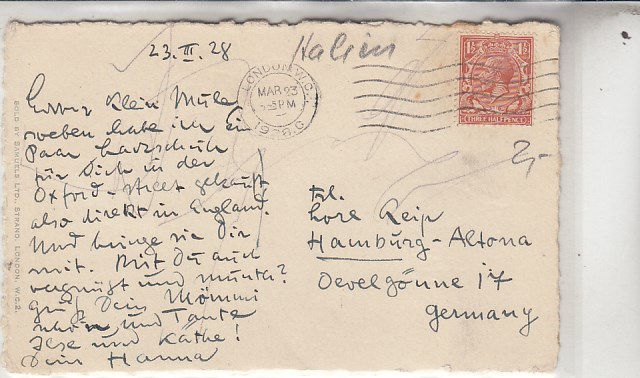 23.III.28
Italien
LONDON. W.C.
MAR 23
5-PM
1928
1½ 1½
THREE HALFPENCE
2,-
klein
soeben habe ich Ein
Paar
für Dich in der
Oxford-street gekauft
also direkt in England.
Und bringe sie Dir
mit. Bist Du auch
vergnügt und munter?
grüß Dein Mömmi
und Tante
Ilse und Käthe!
Dein Hanna
Frl.
Lore Reip
Hamburg-Altona
Oevelgönne 17
Germany
SOLD BY SAMUELS LTD., STRAND, LONDON, W.C.2.